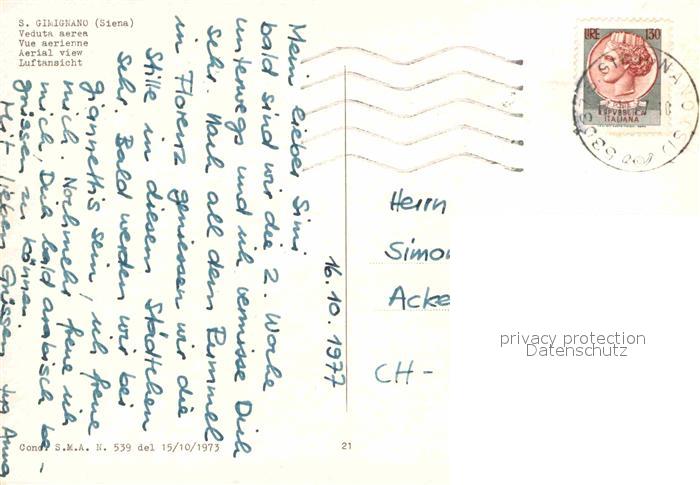 S. GIMIGNANO (Siena)
Veduta aerea
Vue aerienne
Aerial view
Luftansicht
Mein lieber Simi
bald sind wir die 2. Woche
unterwegs und ich vermisse Dich
sehr. Nach all dem Rummel
in Florenz geniessen wir die
Stille in diesem Städtchen
sehr. Bald werden wir bei
Giannettis sein, ich freue
mich. Nochmehr freue ich
mich, Dich bald arabisch be-
grüssen zu können.
Mit lieben Grüssen Anna
16.10.1977
Cond. S.M.A. N. 539 del 15/10/1973
21
LIRE 130
REPVBBLICA
ITALIANA
Herrn
Simo
Acke
CH-
privacy protection
Datenschutz